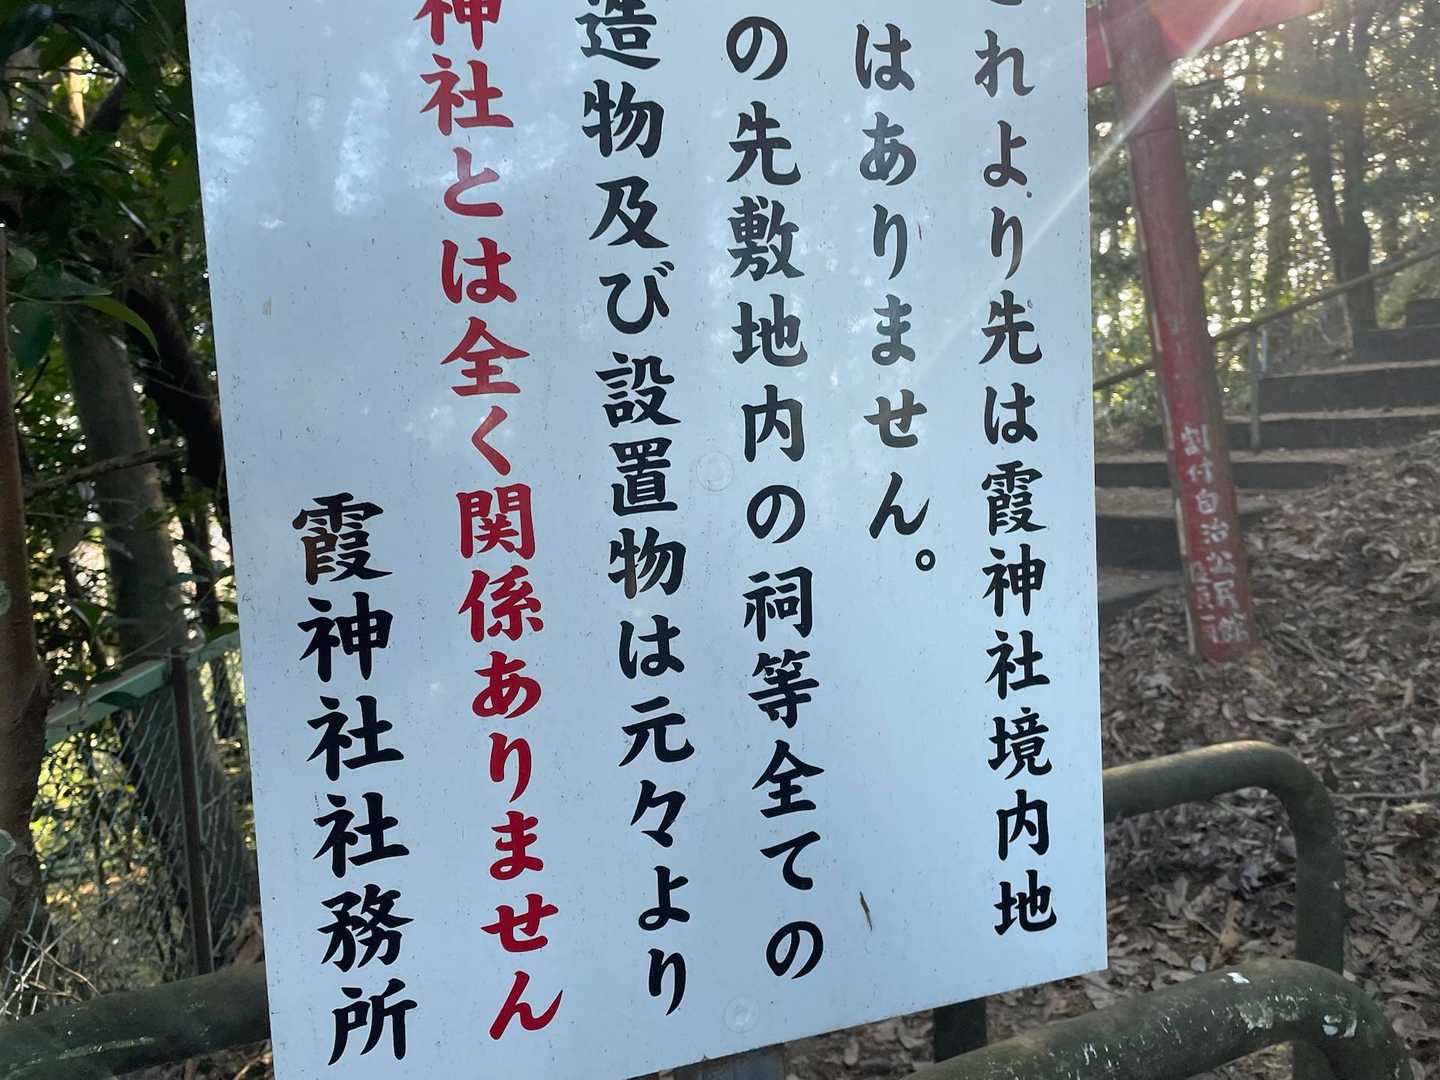 これより先は霞神社境内地
はありません。
の先敷地内の祠等全ての
造物及び設置物は元々より
神社とは全く関係ありません
霞神社社務所
自治公民館